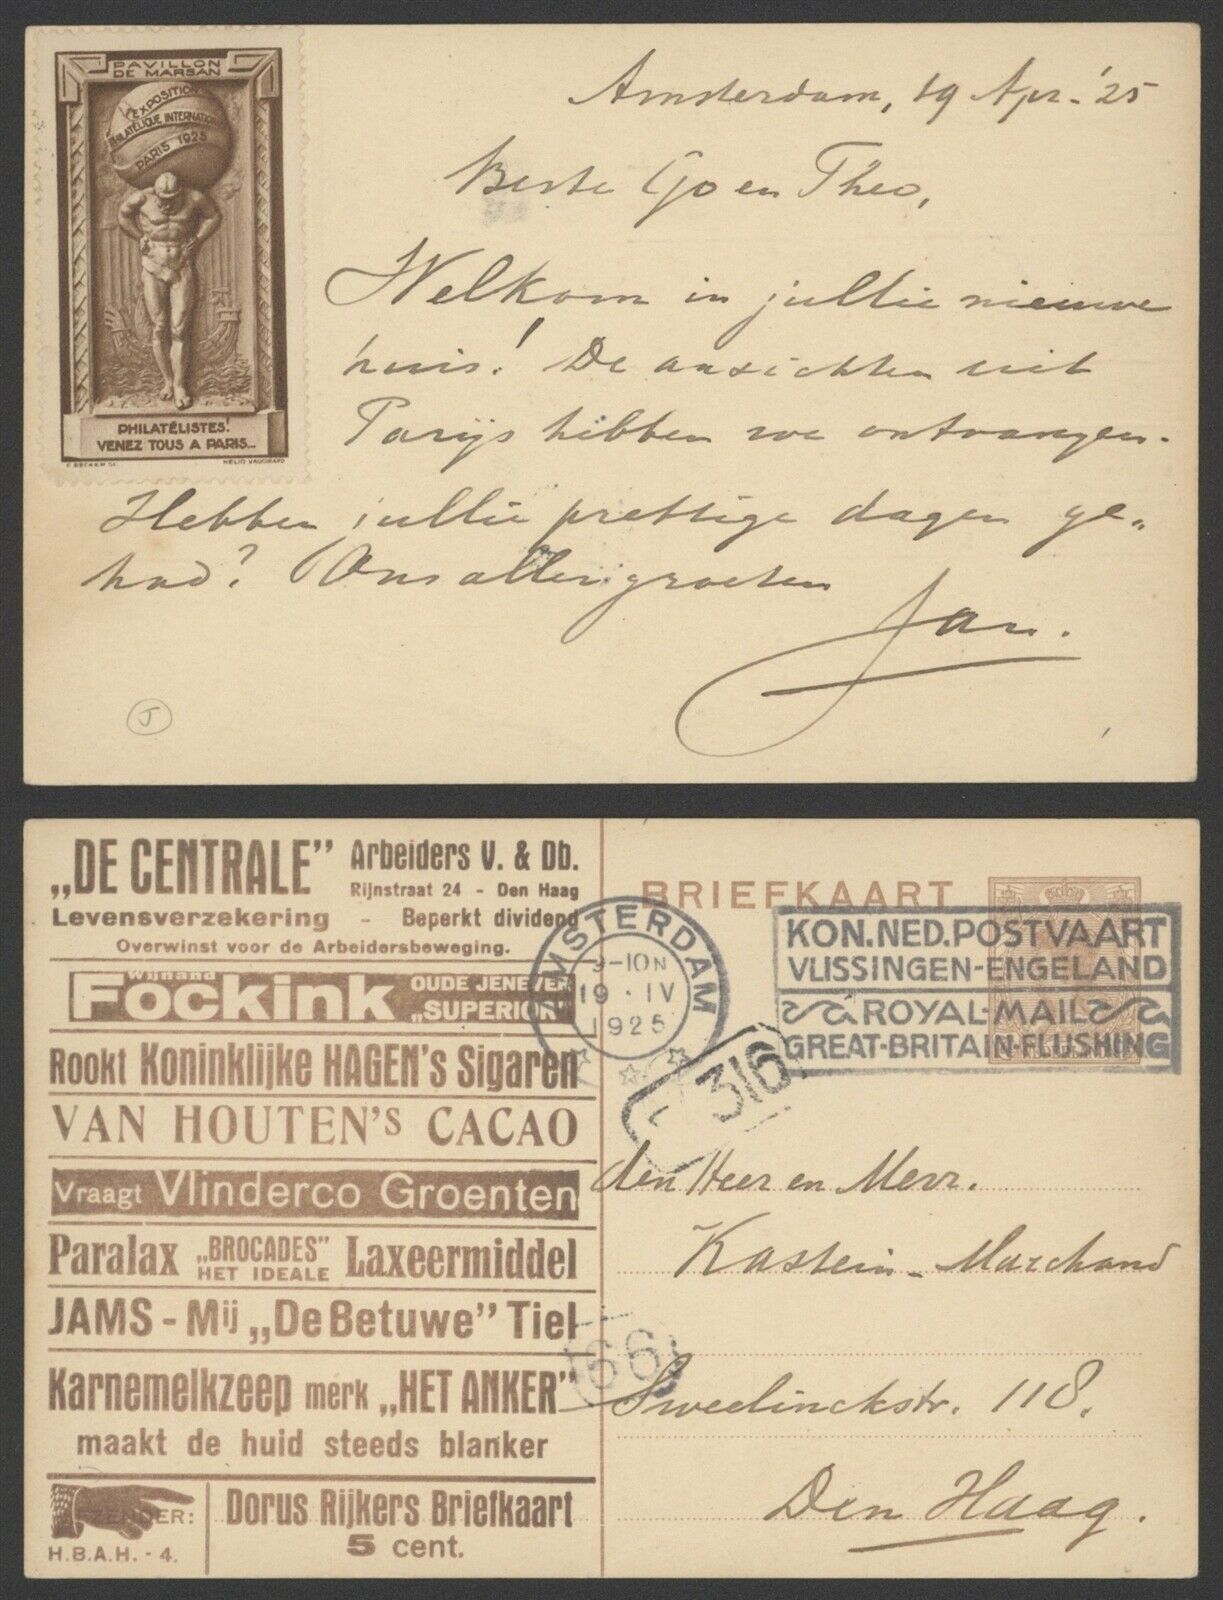 PAVILLON
DE MARSAN
EXPOSITION
PHILATÉLIQUE INTERNATIONALE
PARIS 1925
PHILATÉLISTES!
VENEZ TOUS A PARIS...
HELIO VAUGIRARD
Amsterdam, 19 Apr. '25
Beste Go en Theo,
Welkom in jullie nieuwe
huis! De ansichten uit
Parijs hebben we ontvangen.
Hebben jullie prettige dagen ge-
had? Ons aller groeten
Jan.
J
„DE CENTRALE” Arbeiders V. & Db.
Rijnstraat 24 - Den Haag
Levensverzekering - Beperkt dividend
Overwinst voor de Arbeidersbeweging.
Wijnand
Fockink OUDE JENEVER
„SUPERIOR”
Rookt Koninklijke HAGEN's Sigaren
VAN HOUTEN'S CACAO
Vraagt Vlinderco Groenten
Paralax „BROCADES” Laxeermiddel
HET IDEALE
JAMS - Mij „De Betuwe” Tiel
Karnemelkzeep merk „HET ANKER”
maakt de huid steeds blanker
AFZENDER:
H.B.A.H. - 4.
Dorus Rijkers Briefkaart
5 cent.
BRIEFKAART
AMSTERDAM
9-10N
19.IV
1925
KON.NED.POSTVAART
VLISSINGEN-ENGELAND
ROYAL-MAIL
GREAT-BRITAIN-FLUSHING
316
den Heer en Mevr.
Kastein-Marchand
66
Sweelinckstr. 118.
Den Haag.